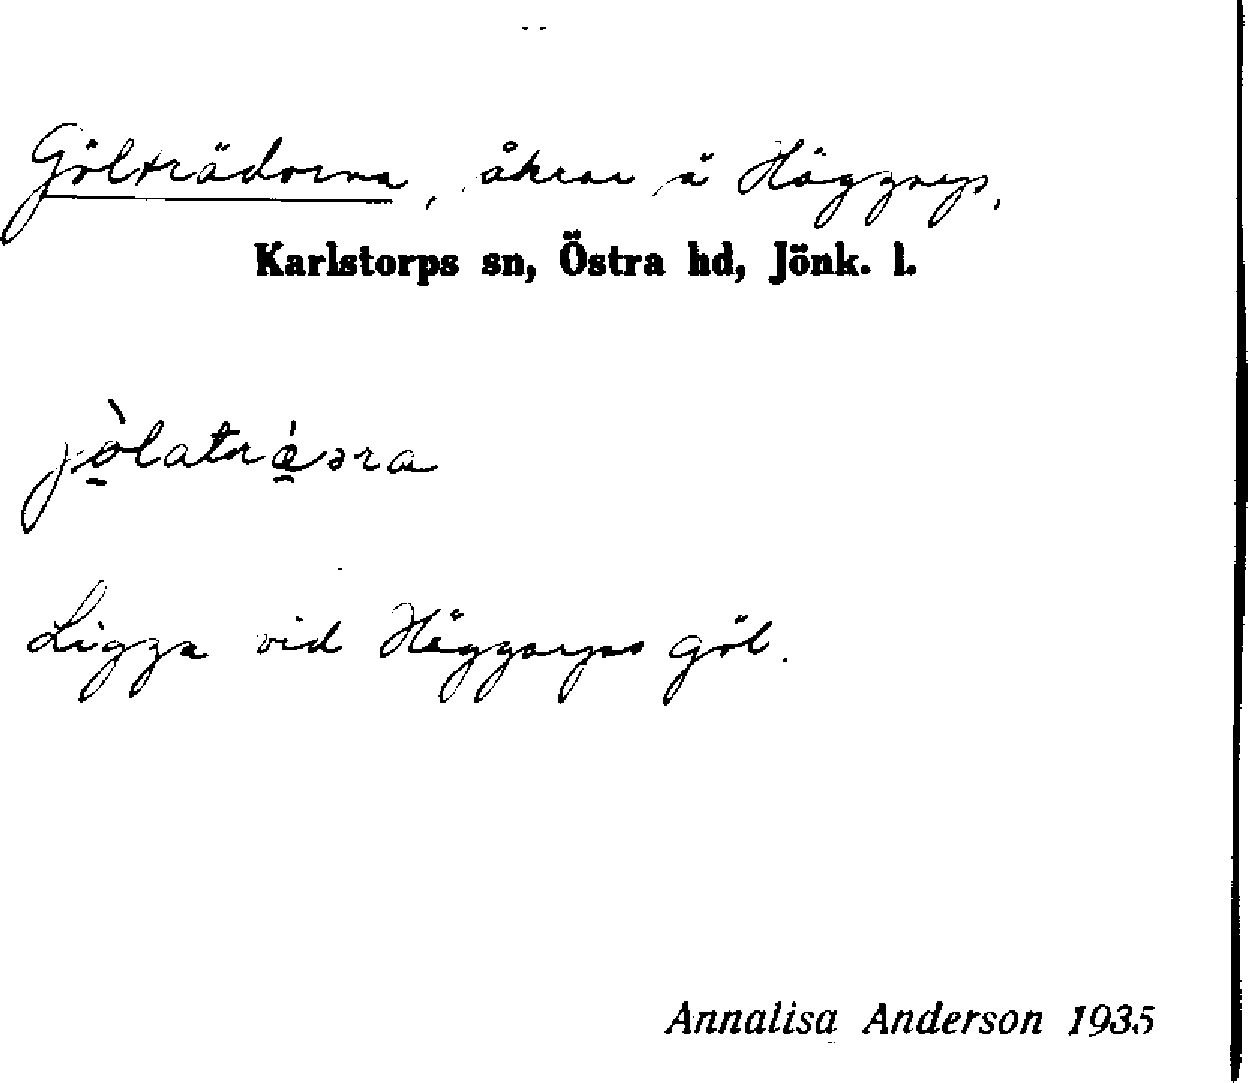 Gölträdorna, åkrar å Häggorp,
Karlstorps sn, Östra hd, Jönk. l.
jòlatrǽəra
Ligga vid Häggorps göl.
Annalisa Anderson 1935